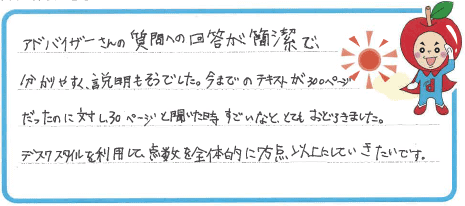 アドバイザーさんの質問への回答が簡潔で、
分かりやすく、説明もそうでした。今までのテキストが300ページ
だったのに対し、30ページと聞いた時すごいなと、とてもおどろきました。
デスクスタイルを利用して、点数を全体的に70点以上にしていきたいです。
d